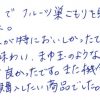 で フルーツ巣ごもりを
が特においしかったで
味わい、まゆ玉のような
て良かったです。また機
購入したい商品でした。